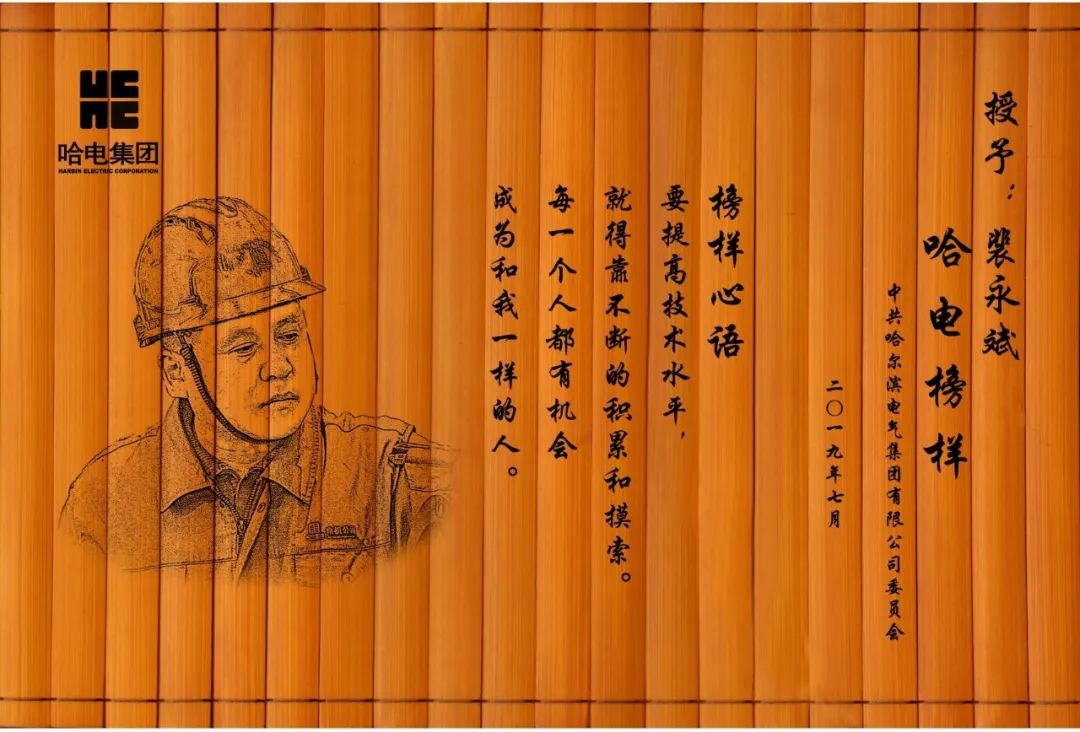 授予：裴永斌
哈电榜样
中共哈尔滨电气集团有限公司委员会
二〇一九年七月
榜样心语
要提高技术水平，
就得靠不断的积累和摸索。
每一个人都有机会
成为和我一样的人。
哈电集团
HARBIN ELECTRIC CORPORATION